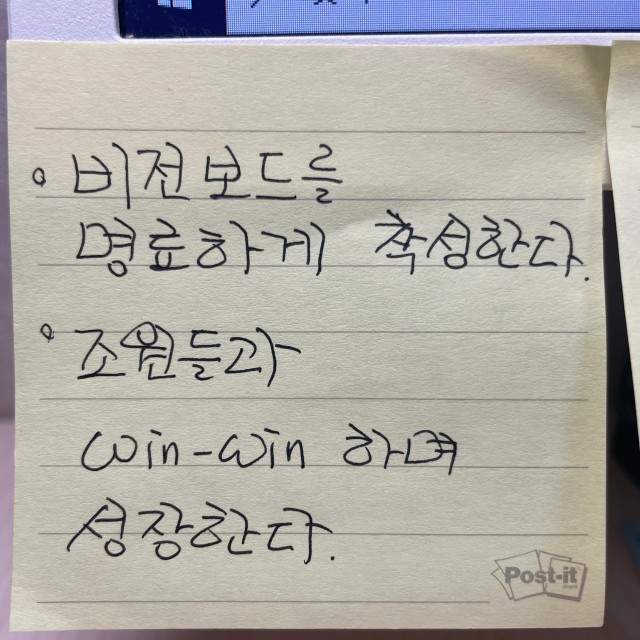 • 비전보드를
명료하게 작성한다.
• 조원들과
win-win 하며
성장한다.
Post-it